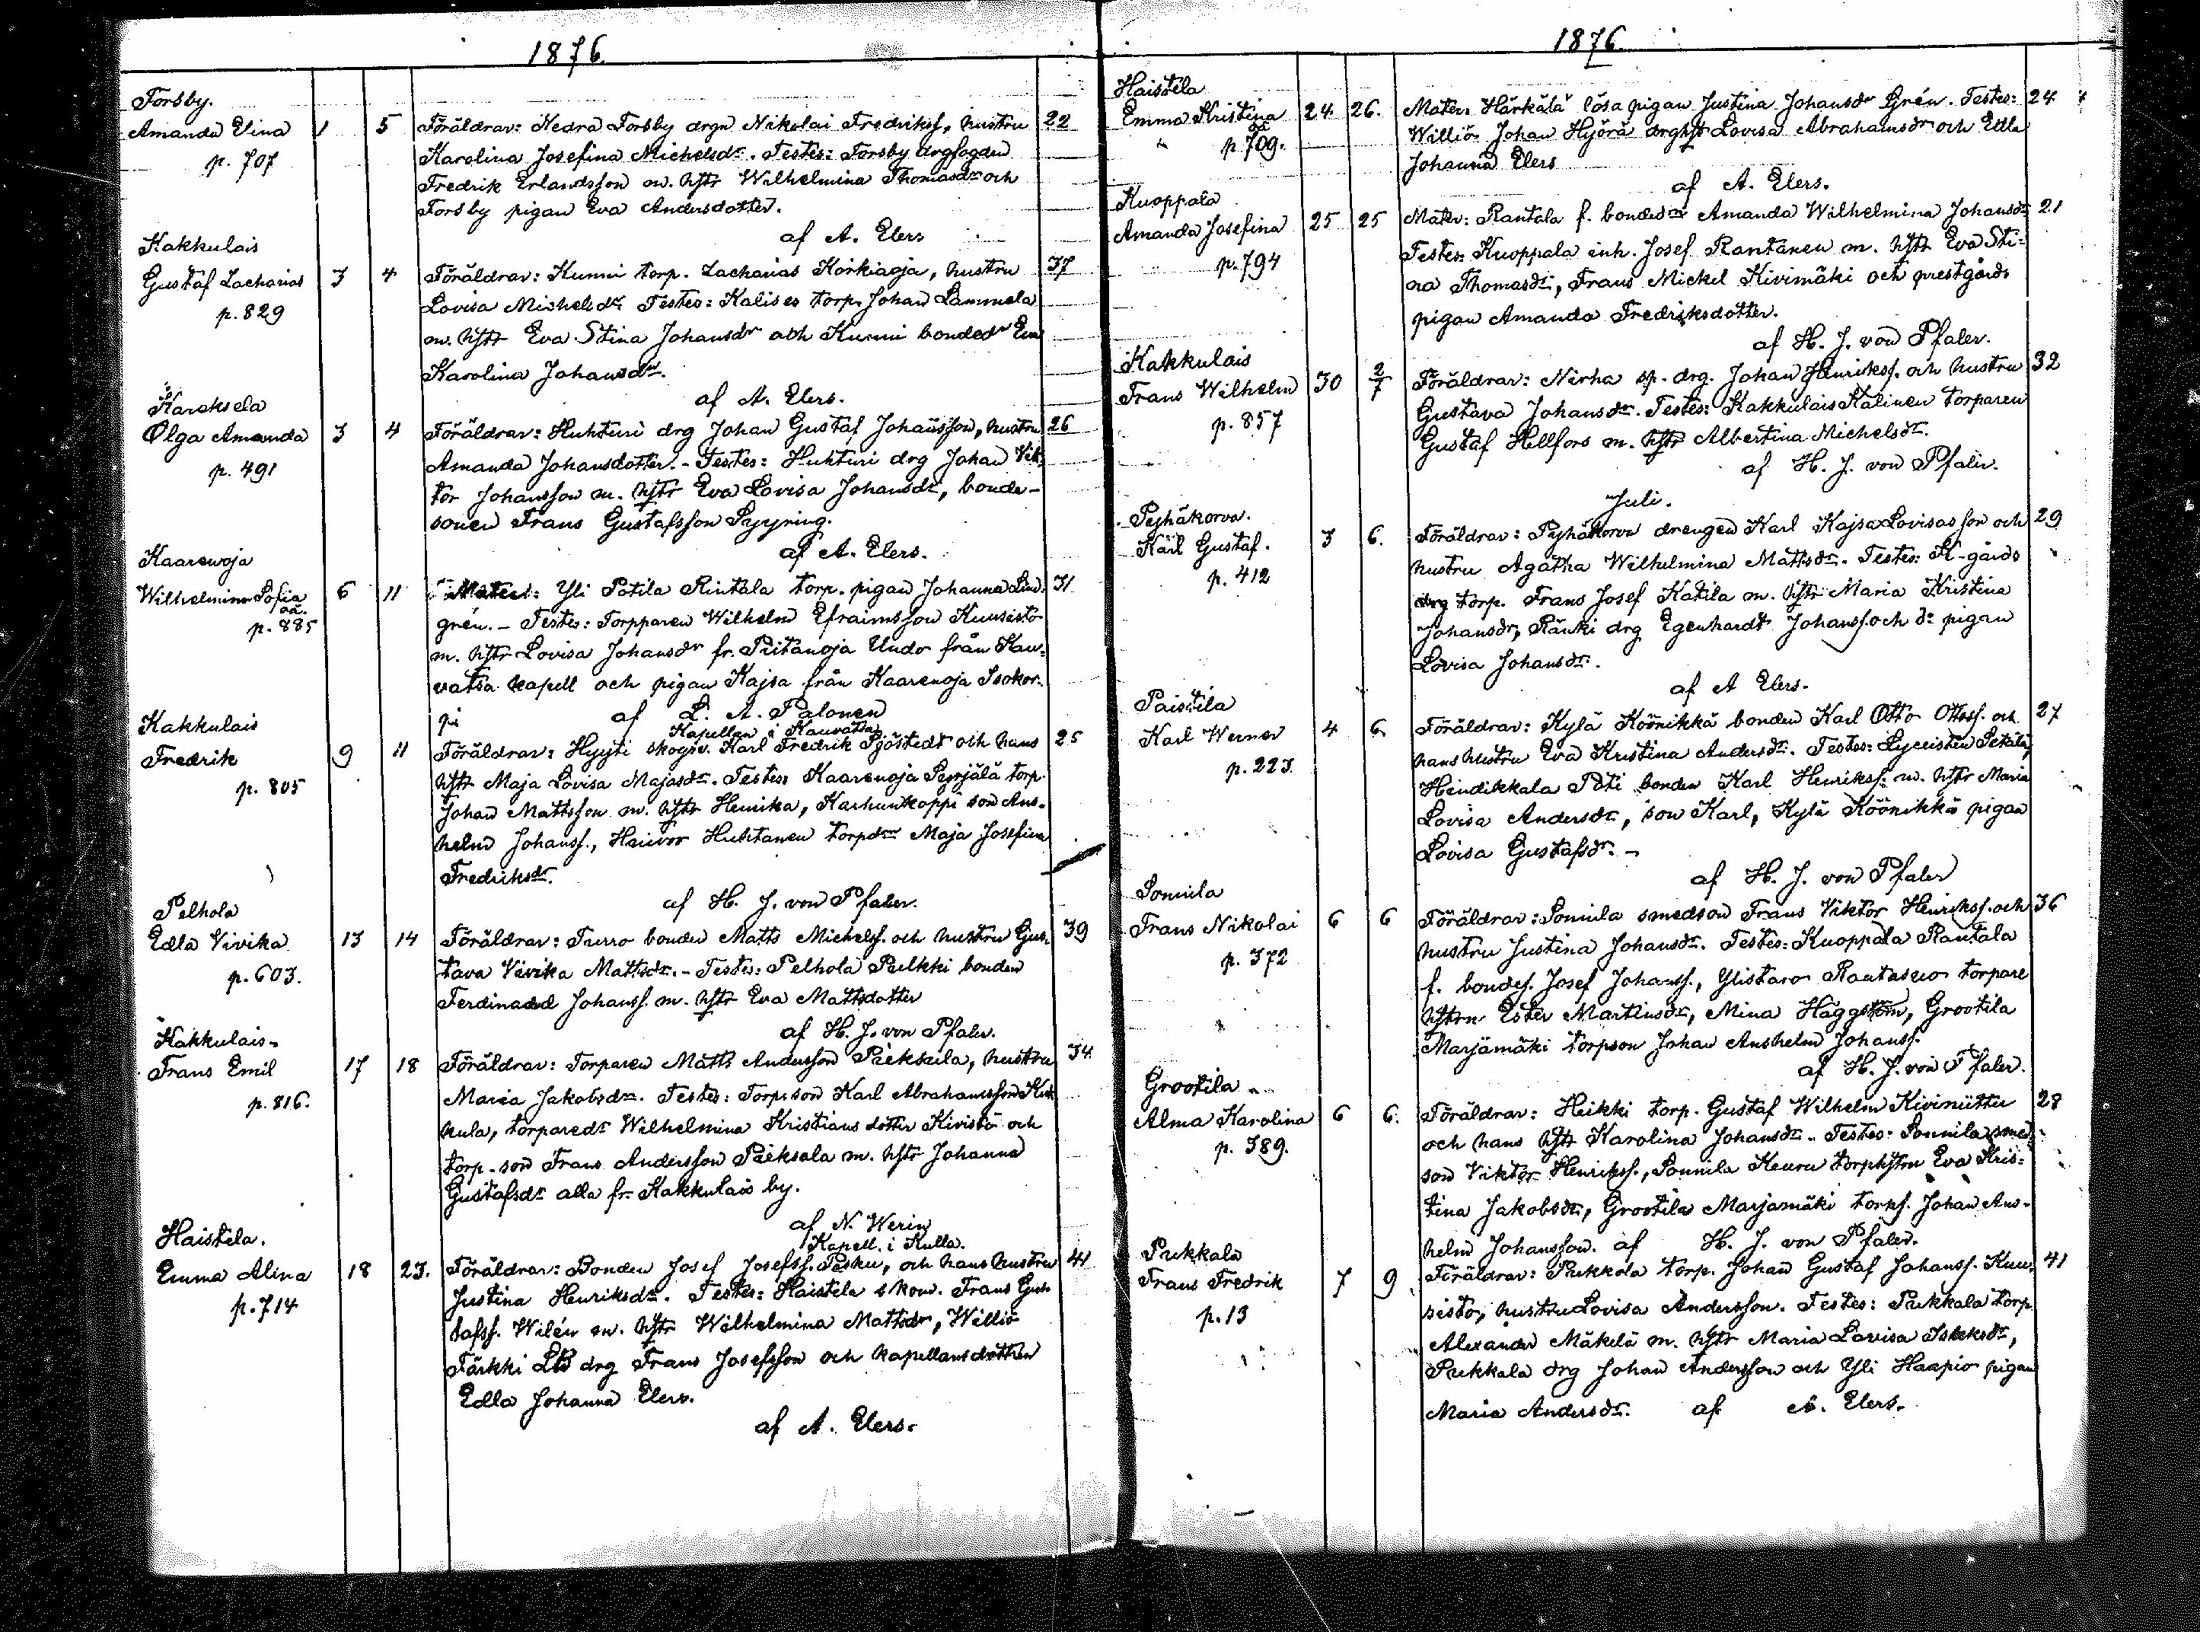 1876.
Forsby.
Amanda Elina 1 5 Föräldrar: Nedra Forsby drgn Nikolai Fredrikss., hustru 22
p. 707 Karolina Josefina Michelsdr. Testes: Forsby drgfogden
Fredrik Erlandsson m. hstr Wilhelmina Thomasdr och
Forsby pigan Eva Andersdotter.
af A. Elers
Kakkulais
Gustaf Zacharias 3 4 Föräldrar: Kunni torp. Zacharias Korkiaoja, hustru 37
p. 829 Lovisa Michelsdr. Testes: Kalises torp. Johan Lammela
m. hstr Eva Stina Johansdr och Kunni bondedr Eva
Karolina Johansdr.
af A. Elers.
Kareksela
Olga Amanda 3 4 Föräldrar: Huhturi drg Johan Gustaf Johansson, hustru 26
p. 491 Amanda Johansdotter. - Testes: Huhturi drg Johan Vik-
tor Johansson m. hstr Eva Lovisa Johansdr, bonde-
sonen Frans Gustafsson Syyring.
af A. Elers.
Kaarenoja
Wilhelmina Sofia 6 11 Mater: Yli Potila Rintala torp. pigan Johanna Lind- 31
oä.
p. 885 grén. - Testes: Torpparen Wilhelm Efraimsson Kuusisto
m. hstr Lovisa Johansdr fr. Piitanoja Undo från Kau-
vatsa kapell och pigan Kajsa från Kaarenoja Isokor-
pi af L. A. Palonen
Kapellan i Kauvatsa
Kakkulais
Fredrik 9 11 Föräldrar: Hyyti skogsv. Karl Fredrik Sjöstedt och hans 25
p. 805 hstr Maja Lovisa Majasdr. Testes: Kaarenoja Pyrjälä torp.
Johan Mattsson m. hstr Henrika, Karhunkoppi son Ans-
helm Johanss., Huhtanen torpdr Maja Josefina
Fredriksdr.
af H. J. von Pfaler.
Pelhola
Edla Vivika 13 14 Föräldrar: Turro bonden Matts Michelss. och hustru Gus- 39
p. 603. tava Vivika Mattsdr. - Testes: Pelhola Pelkki bonden
Ferdinand Johanss. m. hstr Eva Mattsdotter
af H. J. von Pfaler.
Kakkulais
Frans Emil 17 18 Föräldrar: Torparen Matts Andersson Pieksala, hustru 34.
p. 816. Maria Jakobsdr. Testes: Torpson Karl Abrahamsson
kula, torparedr Wilhelmina Kristiansdotter Kivistö och
torp. son Frans Andersson Pieksala m. hstr Johanna
Gustafsdr alla fr. Kakkulais by.
af N. Werin
Kapell. i Kulla.
Haistila.
Emma Alina 18 23. Föräldrar: Bonden Josef Josefss. Pesku, och hans hustru 41
p. 714 Justina Henriksdr. Testes: Haistila skom. Frans Gus-
tafss. Wilén m. hstr Wilhelmina Mattsdr, Williö
Tärkki drg Frans Josefsson och kapellansdottren
Edla Johanna Elers.
af A. Elers.
1876.
Haistila
Emma Kristina 24. 26. Mater: Härkälä lösa pigan Justina Johansdr Grén. Testes: 24.
oä
p. 709. Williö Johan Hjörä drghstr Lovisa Abrahamsdr och Edla
Johanna Elers
af A. Elers.
Kuoppala
Amanda Josefina 25 25 Mater: Rantala f. bondedr Amanda Wilhelmina Johansdr 21
p. 794 Testes: Kuoppala inh. Josef Rantanen m. hstr Eva Sti-
na Thomasdr, Frans Mickel Kivimäki och prestgårds
pigan Amanda Fredriksdotter.
af H. J. von Pfaler.
Kakkulais
Frans Wilhelm 30 2/7 Föräldrar: Nirha sp. drg. Johan Henrikss. och hustru 32
p. 857 Gustava Johansdr. Testes: Kakkulais Kalinen torparen
Gustaf Hellfors m. hstr Albertina Michelsdr.
af H. J. von Pfaler.
Juli.
Pyhäkorva.
Karl Gustaf. 3 6. Föräldrar: Pyhäkorva drengen Karl Kajsa Lovisasson och 29
p. 412 hustru Agatha Wilhelmina Mattsdr. Testes: K-gårds
torp. Frans Josef Katila m. hstr Maria Kristina
Johansdr, Ränki drg Egenhardt Johanss. och dr pigan
Lovisa Johansdr.
af A Elers.
Paistila
Karl Werner 4 6. Föräldrar: Kylä Köönikkä bonden Karl Otto Ottoss. och 27
p. 223. hans hustru Eva Kristina Andersdr. Testes: Lyceisten
Heindikkala Pöti bonden Karl Henrikss. m. hstr Maria
Lovisa Andersdr, son Karl, Kylä Köönikkä pigan
Lovisa Gustafsdr. -
af H. J. von Pfaler
Sonnila
Frans Nikolai 6 6 Föräldrar: Sonnila smedson Frans Viktor Henrikss. och 36
p. 372 hustru Justina Johansdr. Testes: Kuoppala Rantala
f. bondes. Josef Johanss., Ylistaro Rautasuo torpare
hstrn Ester Martinsdr, Mina Häggström, Grootila
Marjamäki torpson Johan Anshelm Johanss.
af H. J. von Pfaler.
Grootila
Alma Karolina 6 6. Föräldrar: Heikki torp. Gustaf Wilhelm Kiviniitter 28
p. 389. och hans hstr Karolina Johansdr. Testes: Sonnila smed-
son Viktor Henrikss., Sonnila Keuru torphstrn Eva Kris-
tina Jakobsdr, Grootila Marjamäki torps. Johan Ans-
helm Johansson. af H. J. von Pfaler.
Pukkala
Frans Fredrik 7 9 Föräldrar: Pukkala torp. Johan Gustaf Johanss. Kuu- 41
p. 13 sisto, hustru Lovisa Andersson. Testes: Pukkala torp.
Alexander Mäkelä m. hstr Maria Lovisa Isaksdr,
Pukkala drg Johan Andersson och Yli Haapio pigan
Maria Andersdr. af A. Elers.